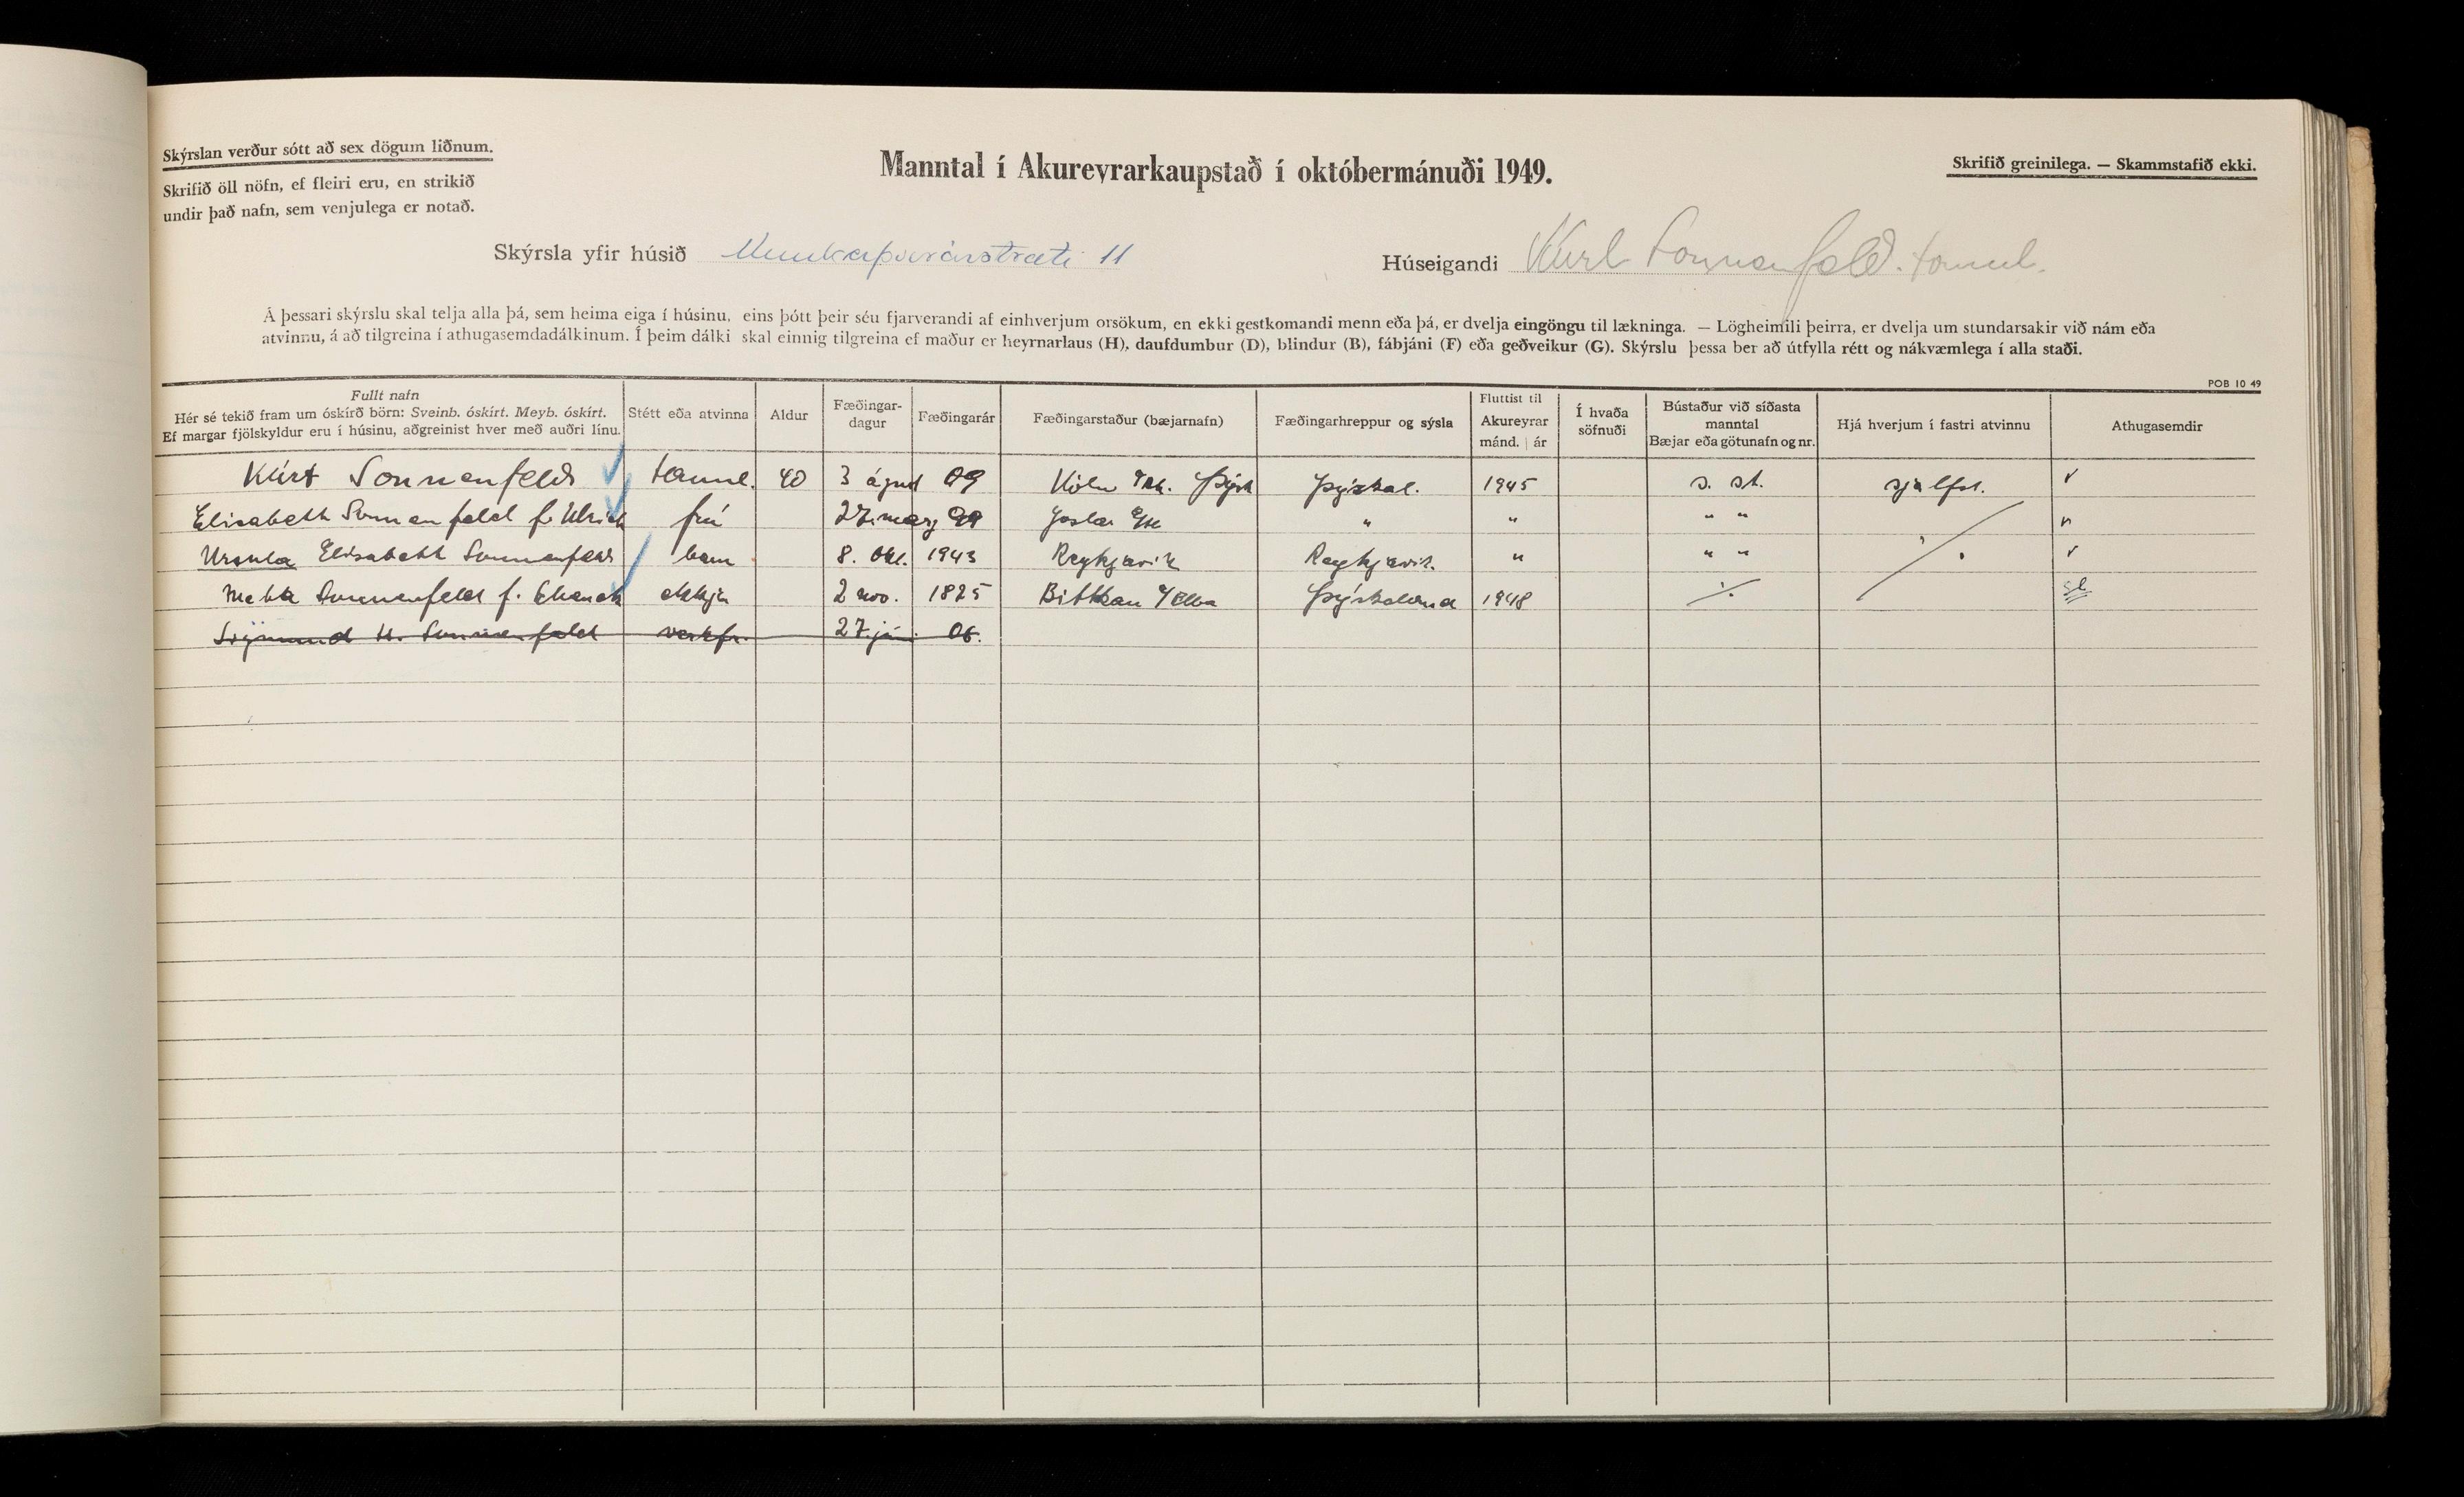 Skýrslan verður sótt að sex dögum liðnum.
Skrifið öll nöfn, ef fleiri eru, en strikið
undir það nafn, sem venjulega er notað.
Manntal í Akureyrarkaupstað í októbermánuði 1949.
Skrifið greinilega. — Skammstafið ekki.
Skýrsla yfir húsið Munkaþverárstræti 11
Húseigandi Kurt Sonnenfeld. tannl.
Á þessari skýrslu skal telja alla þá, sem heima eiga í húsinu, eins þótt þeir séu fjarverandi af einhverjum orsökum, en ekki gestkomandi menn eða þá, er dvelja eingöngu til lækninga. — Lögheimili þeirra, er dvelja um stundarsakir við nám eða
atvinnu, á að tilgreina í athugasemdadálkinum. Í þeim dálki skal einnig tilgreina ef maður er heyrnarlaus (H), daufdumbur (D), blindur (B), fábjáni (F) eða geðveikur (G). Skýrslu þessa ber að útfylla rétt og nákvæmlega í alla staði.
POB 10 49
Fullt nafn
Hér sé tekið fram um óskírð börn: Sveinb. óskírt. Meyb. óskírt.
Ef margar fjölskyldur eru í húsinu, aðgreinist hver með auðri línu.
Stétt eða atvinna
Aldur
Fæðingar-
dagur
Fæðingarár
Fæðingarstaður (bæjarnafn)
Fæðingarhreppur og sýsla
Fluttist til
Akureyrar
mánd. | ár
Í hvaða
söfnuði
Bústaður við síðasta
manntal
Bæjar eða götunafn og nr.
Hjá hverjum í fastri atvinnu
Athugasemdir
Kúrt Sonnenfeld tannl. 40 3 ágúst 09 Köln Þýsk Þýskal. 1945 s. st. sjálfst.
Elisabeth Sonnenfeld f. Ulrich frú 27. marz Goslar " " " "
Ursula Elisabeth Sonnenfeld barn 8. okt. 1943 Reykjavík Reykjavík. " " "
Meta Sonnenfeld f. ekkja 2 nov. 1825 Þýskaland 1948
H. Sonnenfeld verkfr. 27. 06.